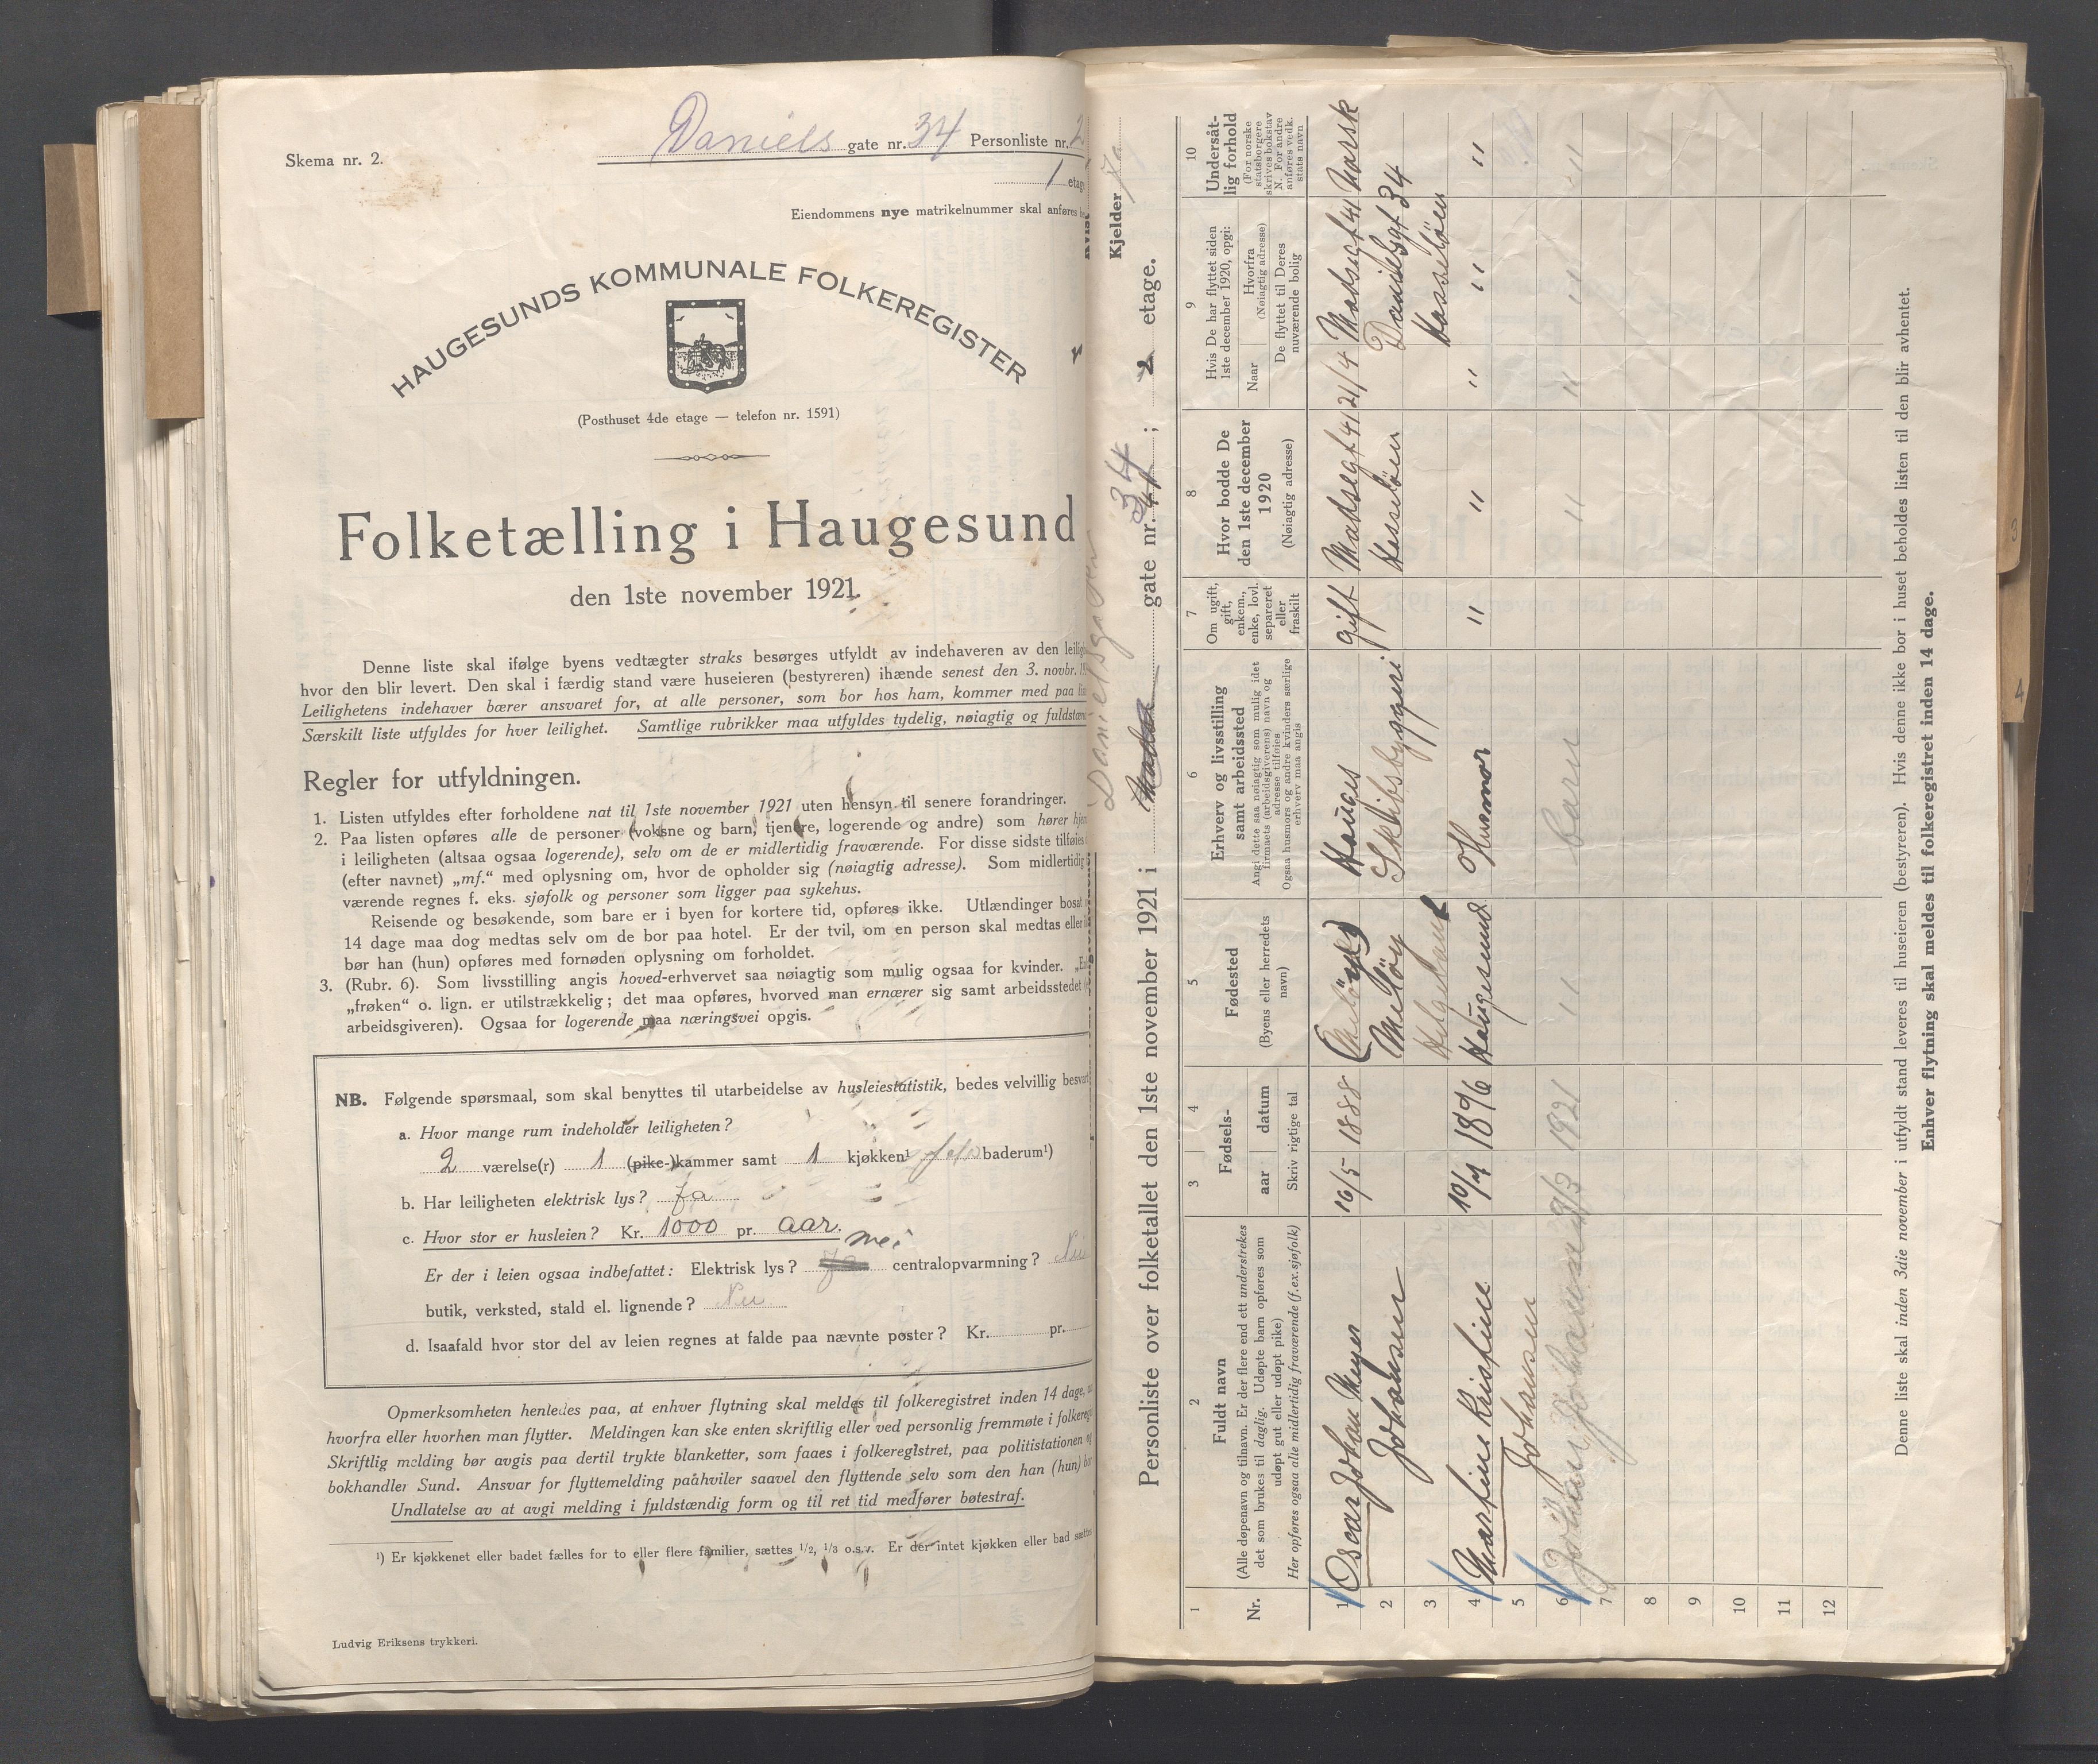 Skema nr. 2.
Daniels gate nr. 34 Personliste nr. 2
1 etag
Eiendommens nye matrikelnummer skal anføres
HAUGESUNDS KOMMUNALE FOLKEREGISTER
(Posthuset 4de etage — telefon nr. 1591)
Folketælling i Haugesund
den 1ste november 1921.
Denne liste skal ifølge byens vedtægter straks besørges utfyldt av indehaveren av den leilig
hvor den blir levert. Den skal i færdig stand være huseieren (bestyreren) ihænde senest den 3. novbr.
Leilighetens indehaver bærer ansvaret for, at alle personer, som bor hos ham, kommer med paa
Særskilt liste utfyldes for hver leilighet. Samtlige rubrikker maa utfyldes tydelig, nøiagtig og fuldstæn
Regler for utfyldningen.
1. Listen utfyldes efter forholdene nat til 1ste november 1921 uten hensyn til senere forandringer.
2. Paa listen opføres alle de personer (voksne og barn, tjenere, logerende og andre) som hører hje
i leiligheten (altsaa ogsaa logerende), selv om de er midlertidig fraværende. For disse sidste tilføies
(efter navnet) „mf.“ med oplysning om, hvor de opholder sig (nøiagtig adresse). Som midlertidig
værende regnes f. eks. sjøfolk og personer som ligger paa sykehus.
Reisende og besøkende, som bare er i byen for kortere tid, opføres ikke. Utlændinger bosat
14 dage maa dog medtas selv om de bor paa hotel. Er der tvil, om en person skal medtas eller
bør han (hun) opføres med fornøden oplysning om forholdet.
3. (Rubr. 6). Som livsstilling angis hoved-erhvervet saa nøiagtig som mulig ogsaa for kvinder.
„frøken“ o. lign. er utilstrækkelig; det maa opføres, hvorved man ernærer sig samt arbeidsstedet
arbeidsgiveren). Ogsaa for logerende maa næringsvei opgis.
NB. Følgende spørsmaal, som skal benyttes til utarbeidelse av husleiestatistik, bedes velvillig besvar
a. Hvor mange rum indeholder leiligheten?
2 værelse(r) 1 (pike-)kammer samt 1 kjøkken¹ baderum¹)
b. Har leiligheten elektrisk lys? Ja
c. Hvor stor er husleien? Kr. 1000 pr. aar.
Er der i leien ogsaa indbefattet: Elektrisk lys? Ja nei centralopvarmning? Nei
butik, verksted, stald el. lignende? Nei
d. Isaafald hvor stor del av leien regnes at falde paa nævnte poster? Kr. pr.
Opmerksomheten henledes paa, at enhver flytning skal meldes til folkeregistret inden 14 dage,
hvorfra eller hvorhen man flytter. Meldingen kan ske enten skriftlig eller ved personlig fremmøte i folkereg
Skriftlig melding bør avgis paa dertil trykte blanketter, som faaes i folkeregistret, paa politistationen
bokhandler Sund. Ansvar for flyttemelding paahviler saavel den flyttende selv som den han (hun)
Undlatelse av at avgi melding i fuldstændig form og til ret tid medfører bøtestraf.
¹) Er kjøkkenet eller badet fælles for to eller flere familier, sættes ½, ⅓ o.s.v. Er der intet kjøkken eller bad sættes
Ludvig Eriksens trykkeri.
Kvist
Kjelder Ja
Danielsgaten 34
Personliste over folketallet den 1ste november 1921 i gate nr. 41; 2 etage.
1
Nr.
2
Fuldt navn
(Alle døpenavn og tilnavn. Er der flere end ett understrekes
det som brukes til daglig. Udøpte barn opføres som
udøpt gut eller udøpt pike)
Her opføres ogsaa alle midlertidig fraværende (f. ex. sjøfolk)
3 4
Fødsels-
aar datum
Skriv rigtige tal
5
Fødested
(Byens eller herredets
navn)
6
Erhverv og livsstilling
samt arbeidssted
Angi dette saa nøiagtig som mulig idet
firmaets (arbeidsgiverens) navn og
adresse tilføies
Ogsaa husmors og andre kvinders særlige
erhverv maa angis
7
Om ugift,
gift,
enkem.,
enke, lovl.
separeret
eller
fraskilt
8
Hvor bodde De
den 1ste december
1920
(Nøiagtig adresse)
9
Hvis De har flyttet siden
1ste december 1920, opgi:
Naar
Hvorfra
(Nøiagtig adresse)
De flyttet til Deres
nuværende bolig
10
Undersåt-
lig forhold
(For norske
statsborgere
skrives bokstav
N. For andre
anføres vedk.
stats navn
1 Oscar Johan Meyer 16/5 1888 Hauges gift Madsegt 41 21/4 Madsegt 41 Norsk
2 Johansen Meløy Skibsbyggeri Hasseløen Danielsgt 34
3 Helgeland Hasseløen
4 Martine Kristine 10/7 1896 Haugesund Husmor " " " " "
5 Johansen
6 Johan Johannes 1921 " barn " " " "
7
8
9
10
11
12
Denne liste skal inden 3die november i utfyldt stand leveres til huseieren (bestyreren). Hvis denne ikke bor i huset beholdes listen til den blir avhentet.
Enhver flytning skal meldes til folkeregistret inden 14 dage.
3
4